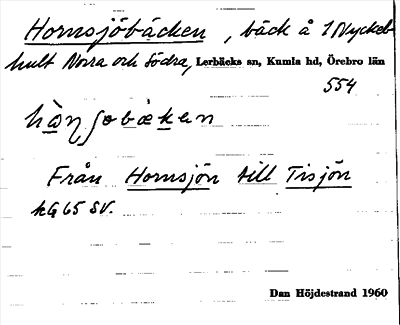 Hornsjöbäcken, bäck å 1 Nyckel-
hult Norra och Södra, Lerbäcks sn, Kumla hd, Örebro län
554
Från Hornsjön till Tisjön
kG65 SV.
Dan Höjdestrand 1960